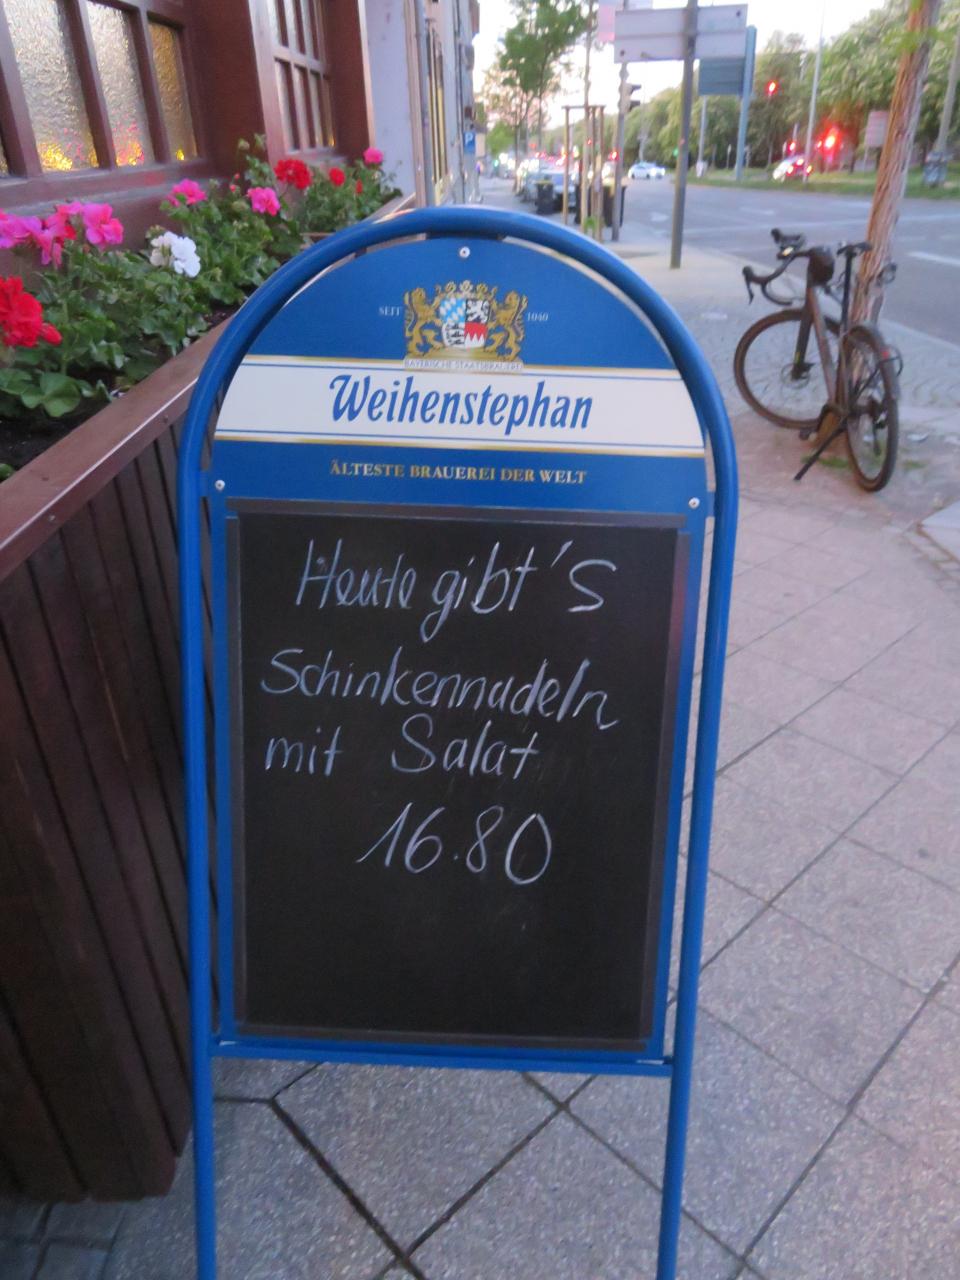 SEIT 1040
BAYERISCHE STAATSBRAUEREI
Weihenstephan
ÄLTESTE BRAUEREI DER WELT
Heute gibt's
Schinkennudeln
mit Salat
16.80
P